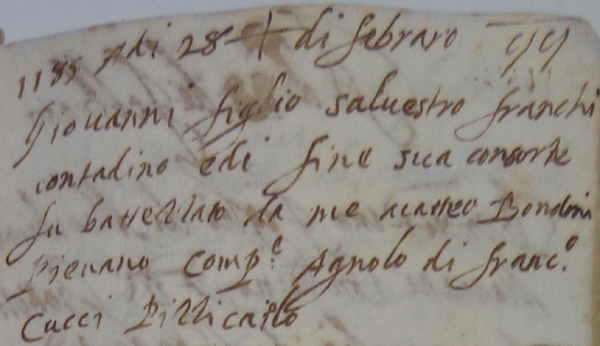 1185 Adi 28 + di febraro 99
Giouanni figlio saluestro franchi
contadino edi fine sua consorte
fu battezzato da me matteo Bondoni
Pieuano Comp.e Agnolo di franc.o
Cucci Pizzicaiolo